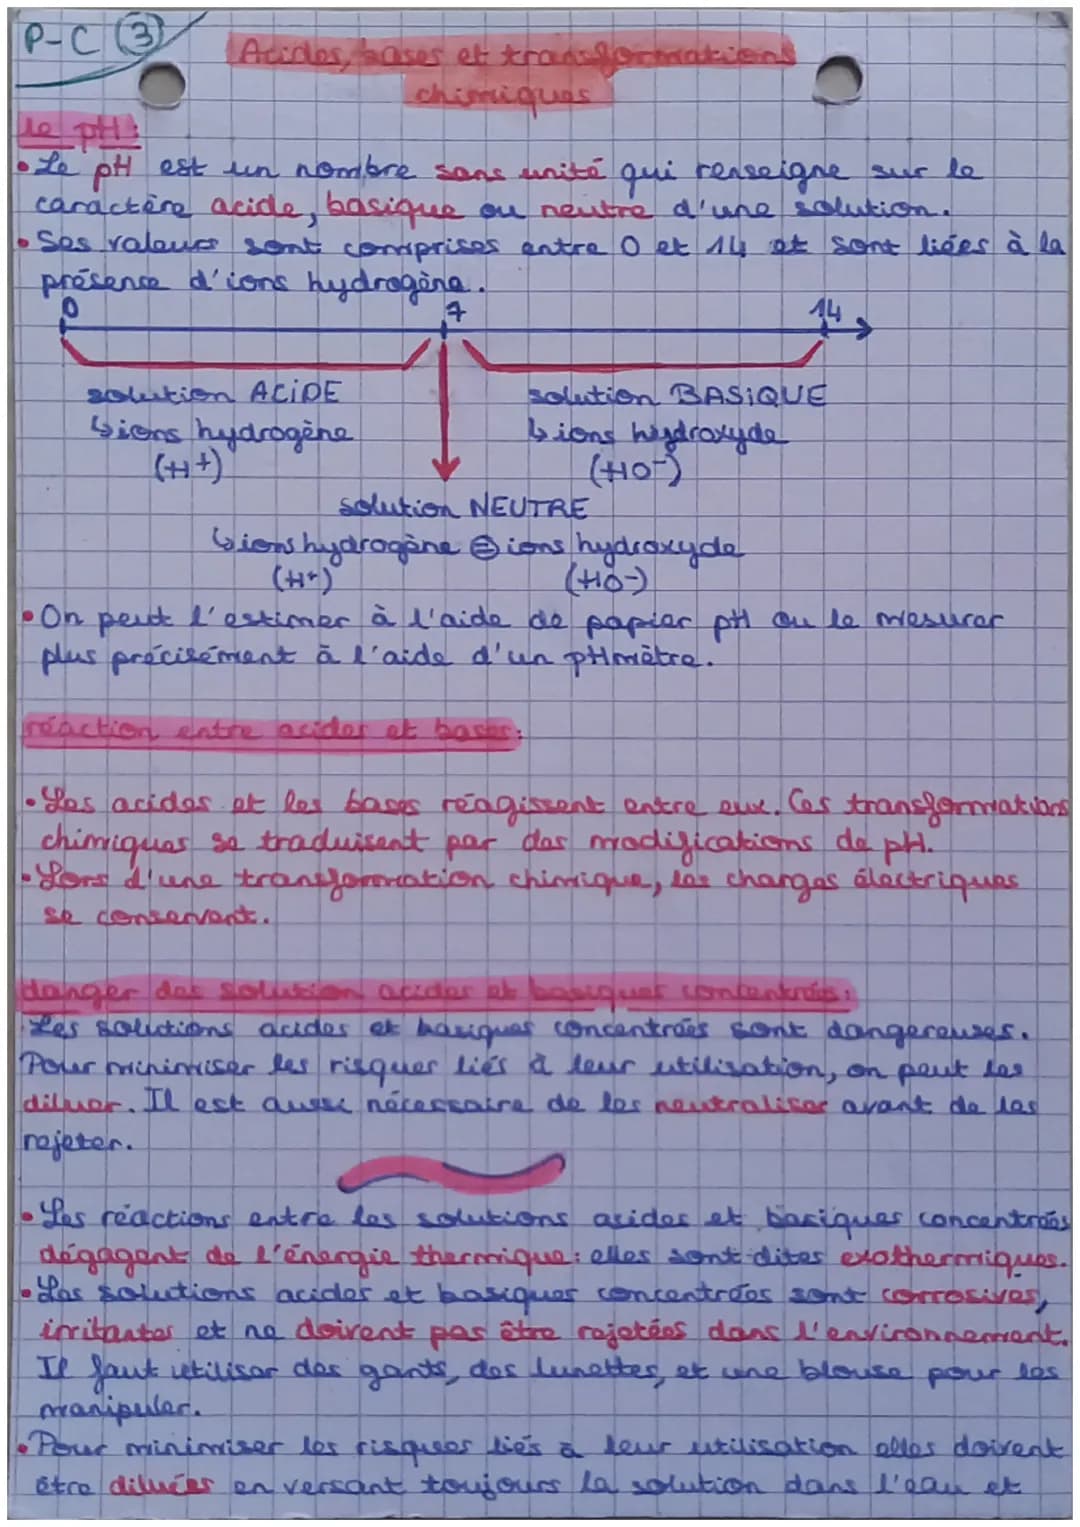 P-C ③
Acides, bases et transformations
chimiques
le pH:
• Le pH est un nombre sans unité qui renseigne sur le
caractère acide, basique ou neutre d'une solution.
• Ses valeurs sont comprises entre 0 et 14 et sont liées à la
présence d'ions hydrogène.
0 7 14
solution ACIDE solution BASIQUE
↳ ions hydrogène ↳ ions hydroxyde
(H+) (HO-)
solution NEUTRE
↳ ions hydrogène = ions hydroxyde
(H+) (HO-)
• On peut l'estimer à l'aide de papier pH ou le mesurer
plus précisément à l'aide d'un pHmètre.
réaction entre acides et bases:
• Les acides et les bases réagissent entre eux. Ces transformations
chimiques se traduisent par des modifications de pH.
• Lors d'une transformation chimique, les charges électriques
se conservent.
danger des solution acides et basiques concentrés:
Les solutions acides et basiques concentrées sont dangereuses.
Pour minimiser les risques liés à leur utilisation, on peut les
diluer. Il est aussi nécessaire de les neutraliser avant de les
rejeter.
• Les réactions entre les solutions acides et basiques concentrées
dégagent de l'énergie thermique: elles sont dites exothermiques.
• Les solutions acides et basiques concentrées sont corrosives,
irritantes et ne doivent pas être rejetées dans l'environnement.
Il faut utiliser des gants, des lunettes, et une blouse pour les
manipuler.
• Pour minimiser les risques liés à leur utilisation elles doivent
être diluées en versant toujours la solution dans l'eau et